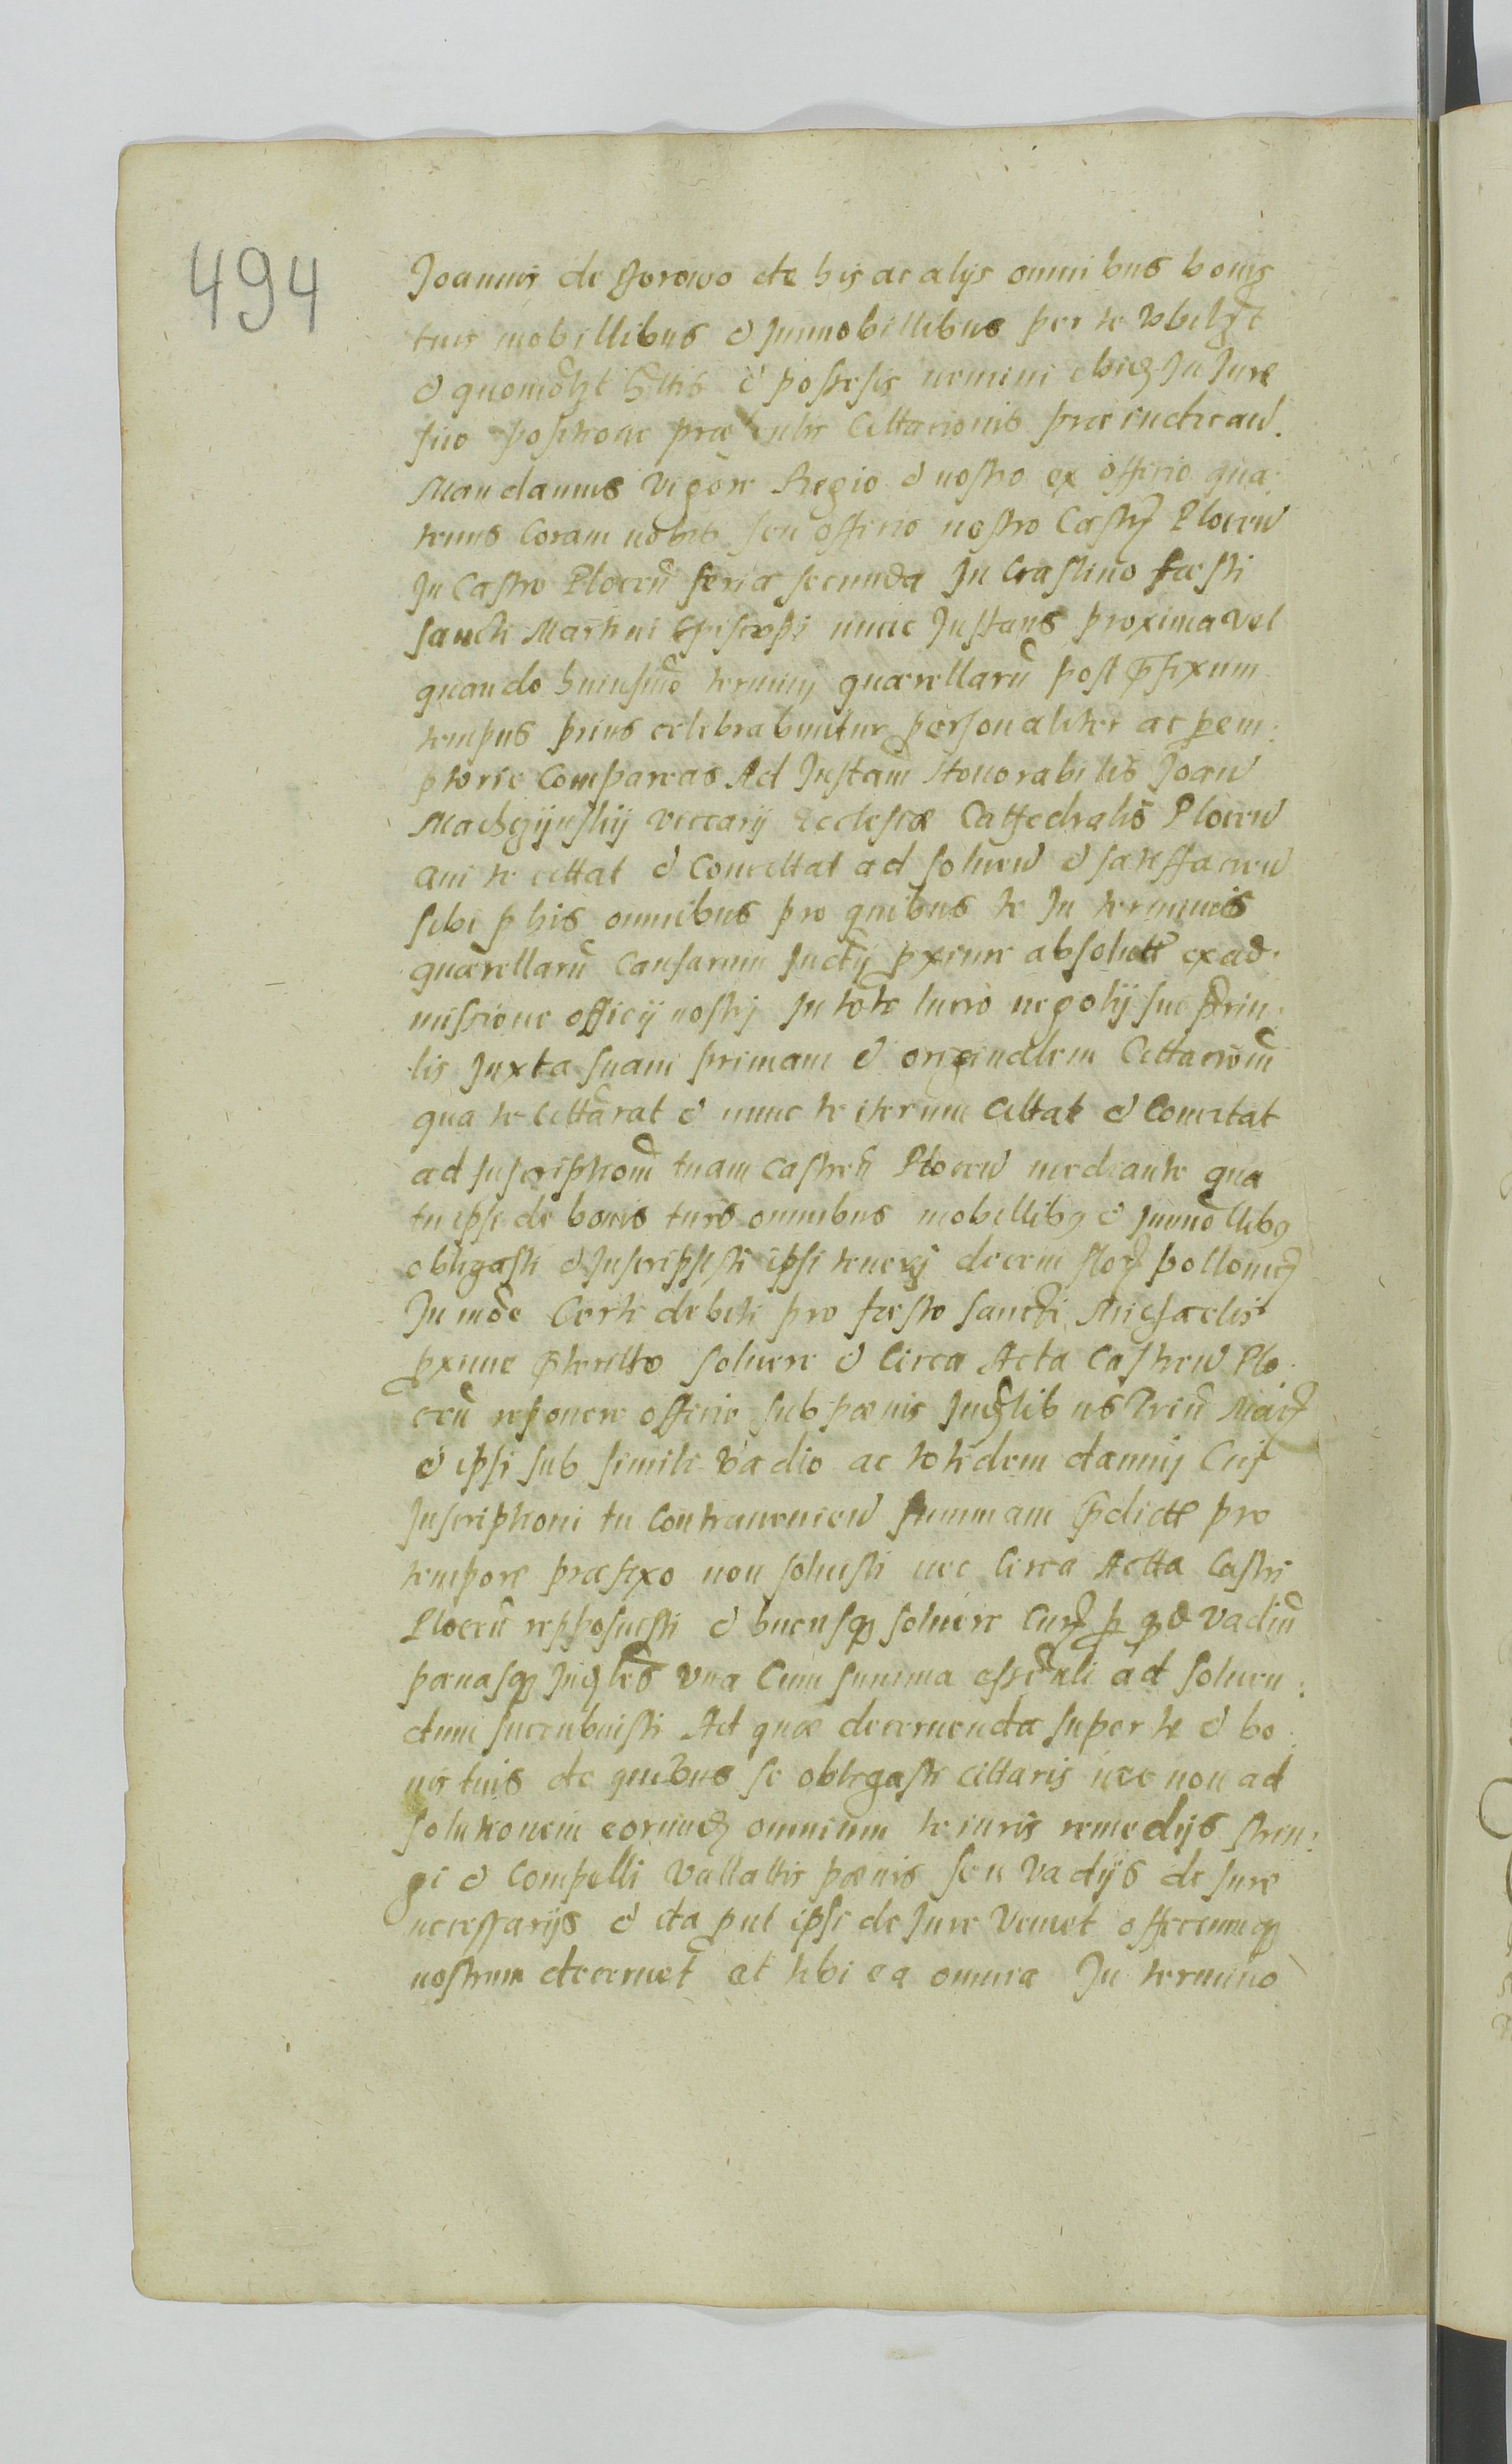 494
Joannis de Gorowo de his ac alijs omnibus bonis
tuis mobillibus & Immobillibus per te vbilȝt
& quomolȝt hĩtis & possesis nemini ebidȝ In Jure
suo positione præsentis Cittationis præiudicand.
Mandamus vigore Regio & nostro ex officio qua:
tenus Coram nobis seu officio nostro Castrj Plocen
In Castro Plocen feria secunda In Crastino fæsti
sancti Martini Episcopi nunc Instans proxima vel
quando huiusmõ terminij quærellarũ post p̃fixum
tempus prius celebrabuntur personaliter ac pem:
ptorie Compareas Ad Instãm Honorabilis Joañ
viccarij Ecclesiæ Cathedralis Plocen
Qui te cittat & Concittat ad soluen & satisfacien
sibi p his omnibus pro quibus te In terminis
quærellarũ Causarum Juditij pxime absolutt ex ad:
missione officij nostrj In toto lucro negotij sui prin:
lis Juxta suam primam & originalem Cittationem
qua te cittarat & nunc te iterum cittat & Concitat
ad Inscriptionem tuam Castren Plocen mediante qua
tu ipse de bonis tuis omnibus mobillibȝ & Immollibȝ
obligasti & Inscripsisti ipsi tenerj decem flor pollonic
In mõe Certi debiti pro fæsto sancti Michaelis
pxime p̃teritto soluere & Circa Acta Castren Plo:
cen reponere officio sub pænis Triũ Marc
& ipsi sub simili vadio ac totidem damnis Cui
Inscriptioni tu Contraueniens summam p̃dictt pro
tempore præfixo non soluisti nec Circa Actta Castri
Plocen repposuisti & hucusqȝ soluere Curas p qđ vadiũ
pænasqȝ vna Cum summa ad soluen:
dum succubuisti Ad quæ decernenda super te & bo:
nis tuis de quibus se obligasti cittaris nec non ad
solutionem eorundȝ omnium te iuris remedijs strin:
gi & Compelli vallattis pænis seu vadijs de Jure
necessarijs & ita put ipse de Jure veniet officiumqȝ
nostrum decernet at tibi ea omnia In termino